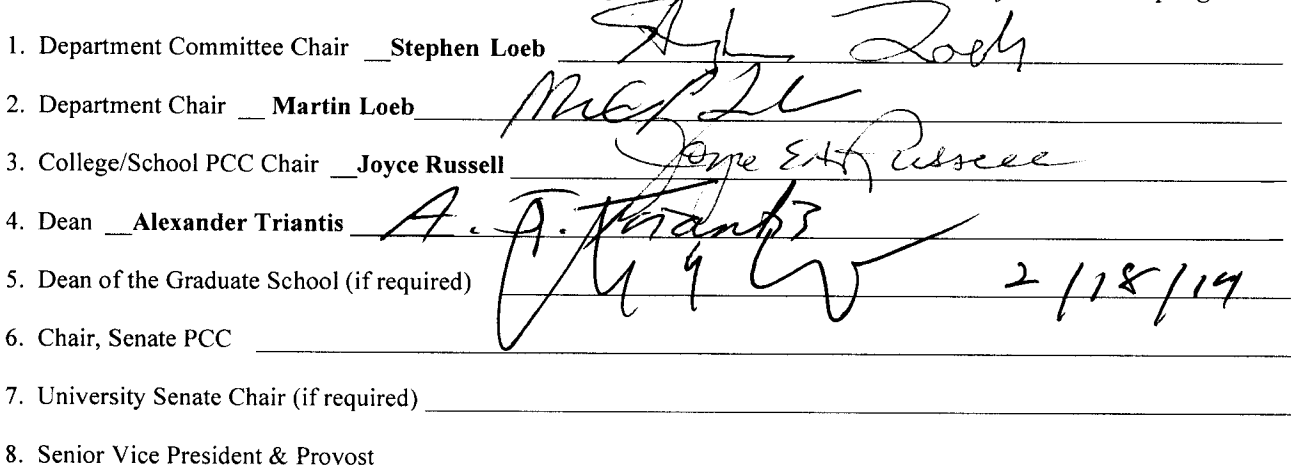 1. Department Committee Chair __Stephen Loeb Loeb
2. Department Chair __ Martin Loeb
3. College/School PCC Chair __Joyce Russell Joyce Russell
4. Dean __Alexander Triantis A. J. Triantis
5. Dean of the Graduate School (if required) 2/18/14
6. Chair, Senate PCC
7. University Senate Chair (if required)
8. Senior Vice President & Provost